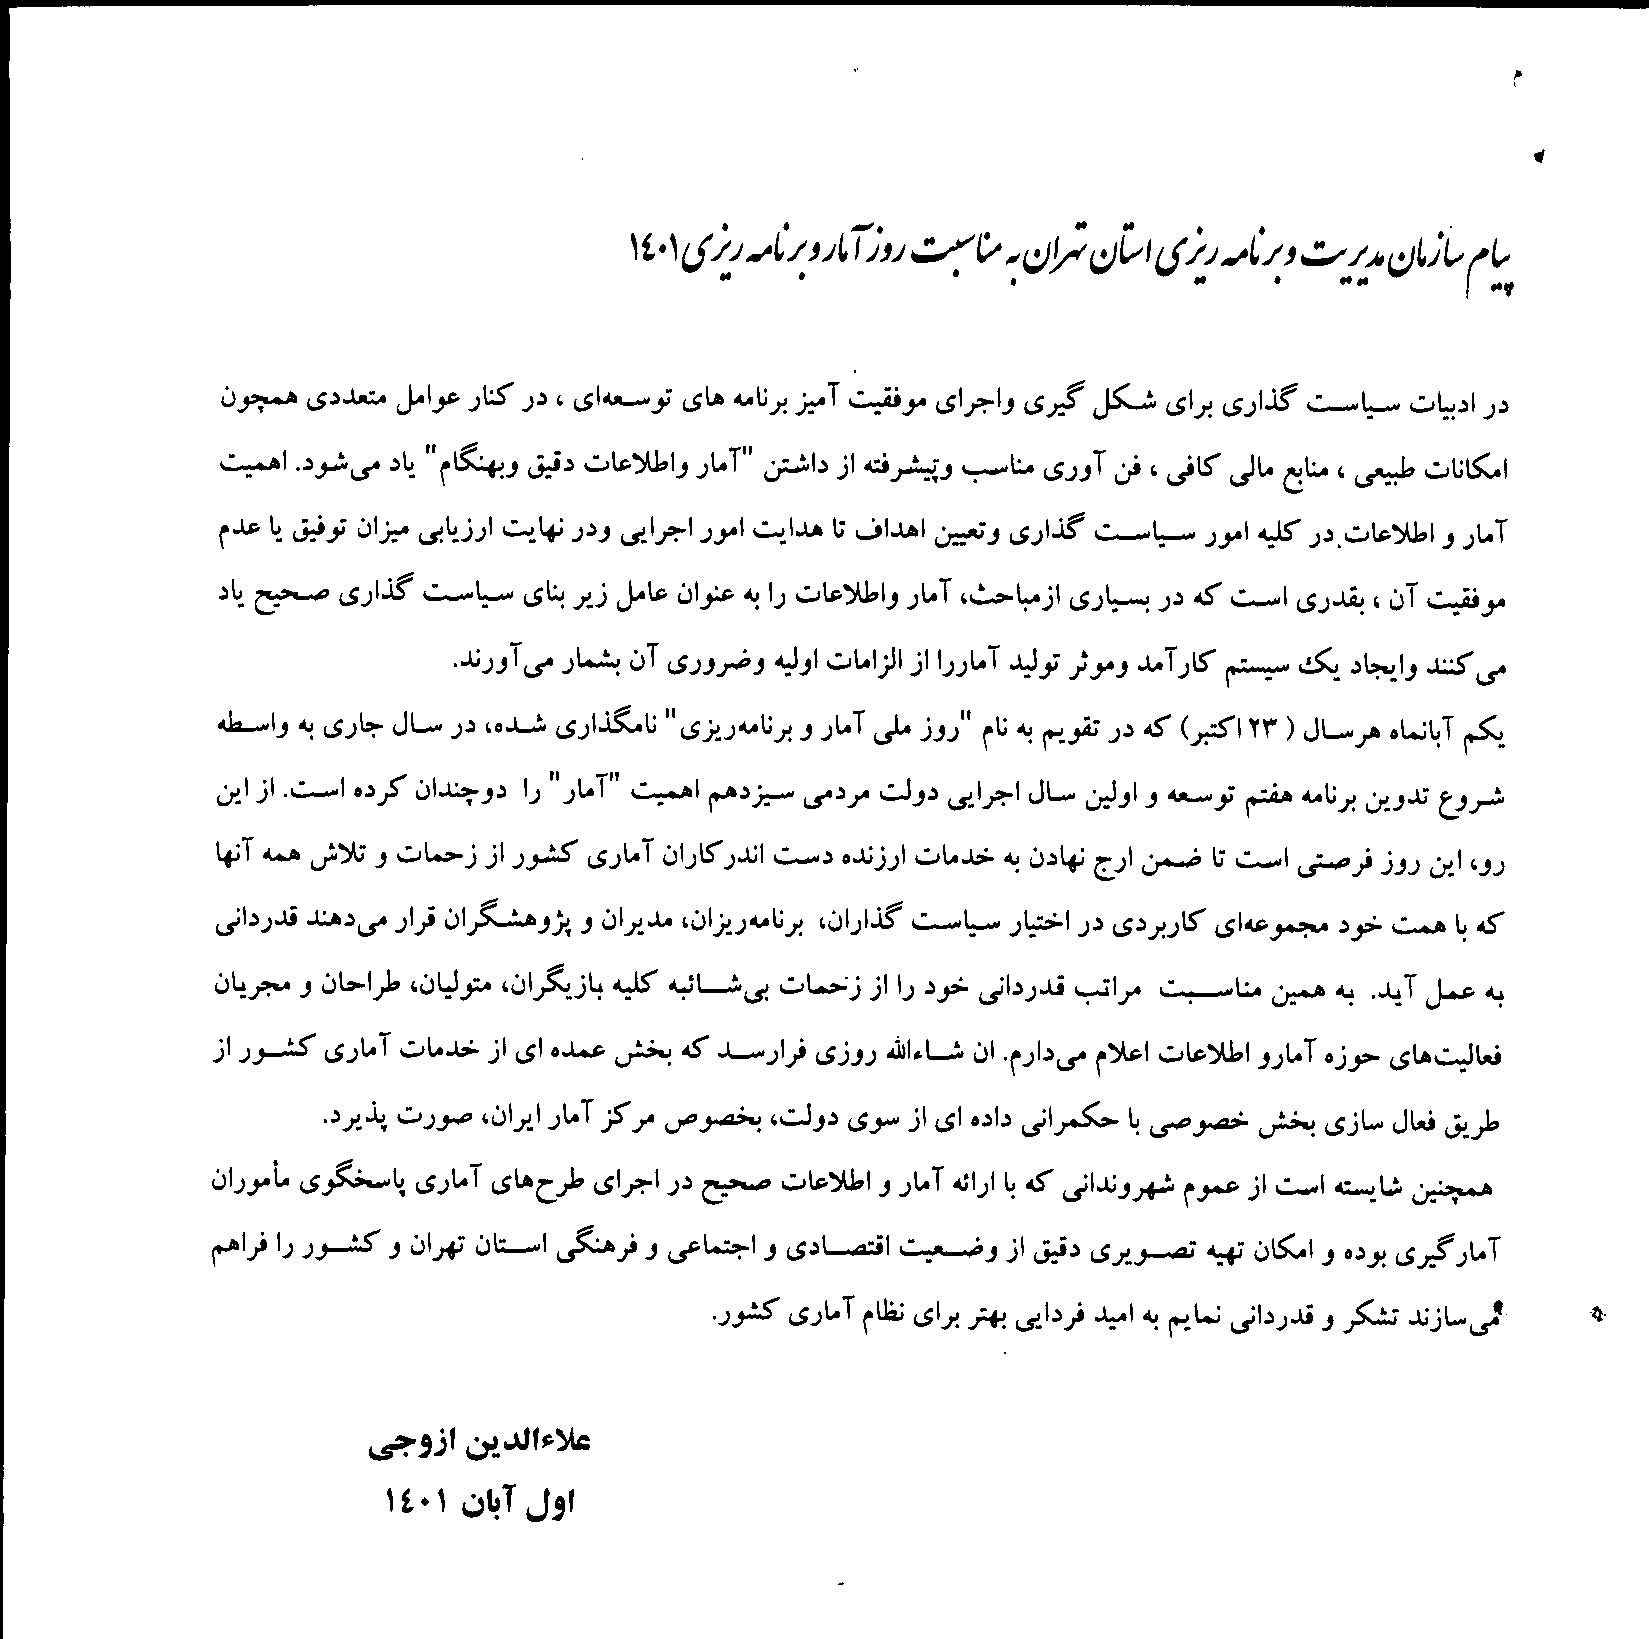 پیام سازمان مدیریت و برنامه ریزی استان تهران به مناسبت روز آمار و برنامه ریزی ۱۴۰۱
در ادبیات سیاست گذاری برای شکل گیری واجرای موفقیت آمیز برنامه های توسعه‌ای ، در کنار عوامل متعددی همچون
امکانات طبیعی ، منابع مالی کافی ، فن آوری مناسب وپیشرفته از داشتن "آمار واطلاعات دقیق وبهنگام" یاد می‌شود. اهمیت
آمار و اطلاعات در کلیه امور سیاست گذاری وتعیین اهداف تا هدایت امور اجرایی ودر نهایت ارزیابی میزان توفیق یا عدم
موفقیت آن ، بقدری است که در بسیاری ازمباحث، آمار واطلاعات را به عنوان عامل زیر بنای سیاست گذاری صحیح یاد
می‌کنند وایجاد یک سیستم کارآمد وموثر تولید آماررا از الزامات اولیه وضروری آن بشمار می‌آورند.
یکم آبانماه هرسال ( ۲۳ اکتبر) که در تقویم به نام "روز ملی آمار و برنامه‌ریزی" نامگذاری شده، در سال جاری به واسطه
شروع تدوین برنامه هفتم توسعه و اولین سال اجرایی دولت مردمی سیزدهم اهمیت "آمار" را دوچندان کرده است. از این
رو، این روز فرصتی است تا ضمن ارج نهادن به خدمات ارزنده دست اندرکاران آماری کشور از زحمات و تلاش همه آنها
که با همت خود مجموعه‌ای کاربردی در اختیار سیاست گذاران، برنامه‌ریزان، مدیران و پژوهشگران قرار می‌دهند قدردانی
به عمل آید. به همین مناسبت مراتب قدردانی خود را از زحمات بی‌شائبه کلیه بازیگران، متولیان، طراحان و مجریان
فعالیت‌های حوزه آمارو اطلاعات اعلام می‌دارم. ان شاءالله روزی فرارسد که بخش عمده ای از خدمات آماری کشور از
طریق فعال سازی بخش خصوصی با حکمرانی داده ای از سوی دولت، بخصوص مرکز آمار ایران، صورت پذیرد.
همچنین شایسته است از عموم شهروندانی که با ارائه آمار و اطلاعات صحیح در اجرای طرح‌های آماری پاسخگوی مأموران
آمارگیری بوده و امکان تهیه تصویری دقیق از وضعیت اقتصادی و اجتماعی و فرهنگی استان تهران و کشور را فراهم
می‌سازند تشکر و قدردانی نمایم به امید فردایی بهتر برای نظام آماری کشور.
علاءالدین ازوجی
اول آبان ۱۴۰۱